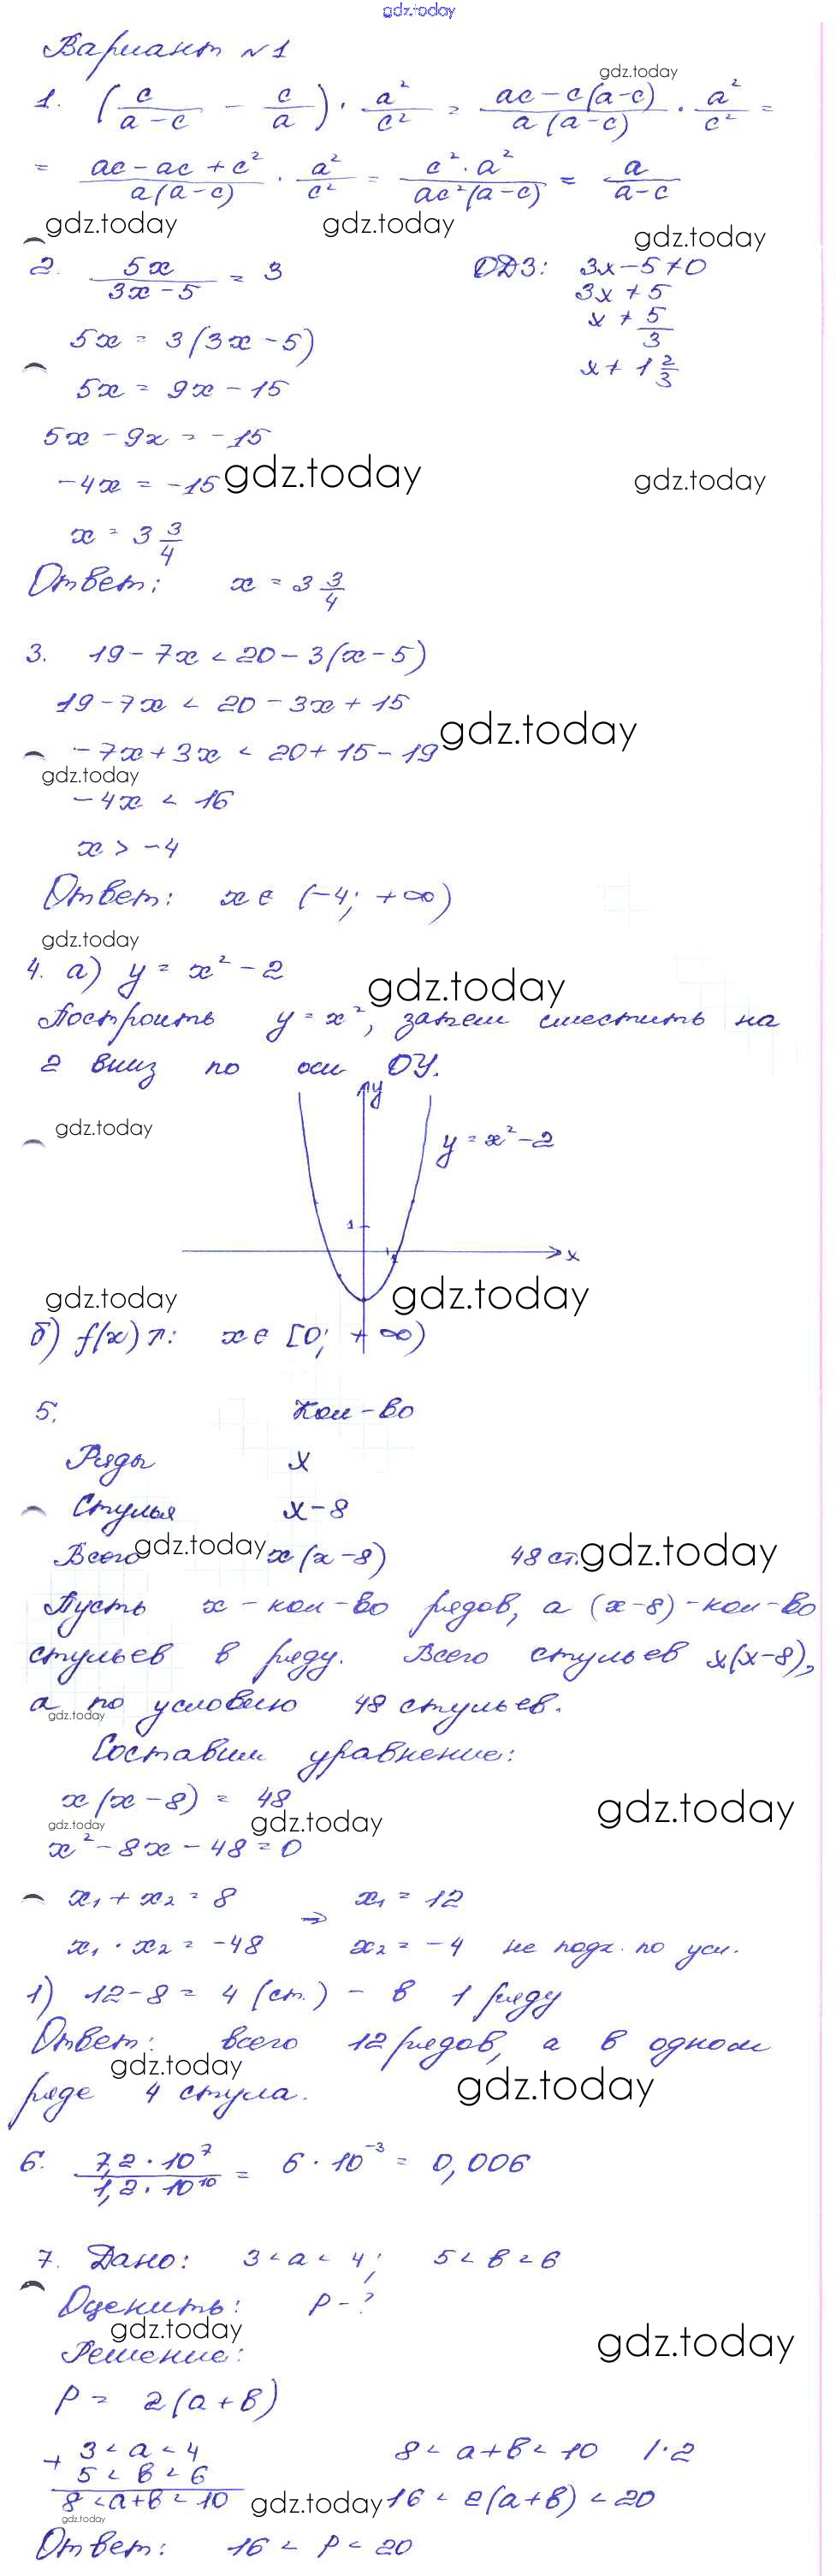 gdz.today
Вариант №1
gdz.today
1. (c/(a-c) - c/a) · a²/c² = (ac-c(a-c))/(a(a-c)) · a²/c² =
= (ac-ac+c²)/(a(a-c)) · a²/c² = (c²·a²)/(ac²(a-c)) = a/(a-c)
gdz.today gdz.today gdz.today
2. 5x/(3x-5) = 3 ОДЗ: 3x-5≠0
3x ≠ 5
5x = 3(3x-5) x ≠ 5/3
5x = 9x-15 x ≠ 1 2/3
5x-9x = -15
-4x = -15 gdz.today gdz.today
x = 3 3/4
Ответ: x = 3 3/4
3. 19-7x < 20-3(x-5)
19-7x < 20-3x+15
-7x+3x < 20+15-19 gdz.today
gdz.today
-4x < 16
x > -4
Ответ: x ∈ (-4; +∞)
gdz.today
4. а) y = x²-2
gdz.today
Построить y = x², затем сместить на
2 вниз по оси ОУ.
y
gdz.today
y = x²-2
1
1 x
gdz.today gdz.today
б) f(x)↗: x ∈ [0; +∞)
5. Кол-во
Ряды x
Стулья x-8
Всего gdz.today x(x-8) 48 ст. gdz.today
Пусть x - кол-во рядов, а (x-8) - кол-во
стульев в ряду. Всего стульев x(x-8),
а по условию 48 стульев.
gdz.today
Составим уравнение:
x(x-8) = 48 gdz.today
gdz.today gdz.today
x²-8x-48=0
x₁+x₂ = 8 ⇒ x₁ = 12
x₁·x₂ = -48 x₂ = -4 не подх. по усл.
1) 12-8 = 4 (ст.) - в 1 ряду
Ответ: всего 12 рядов, а в одном
gdz.today gdz.today
ряде 4 стула.
6. (7,2·10⁷)/(1,2·10¹⁰) = 6·10⁻³ = 0,006
7. Дано: 3<a<4; 5<b<6
Оценить: P-?
gdz.today gdz.today
Решение:
P = 2(a+b)
+ 3<a<4 8<a+b<10 |·2
5<b<6
8<a+b<10 gdz.today 16<2(a+b)<20
gdz.today
Ответ: 16<P<20